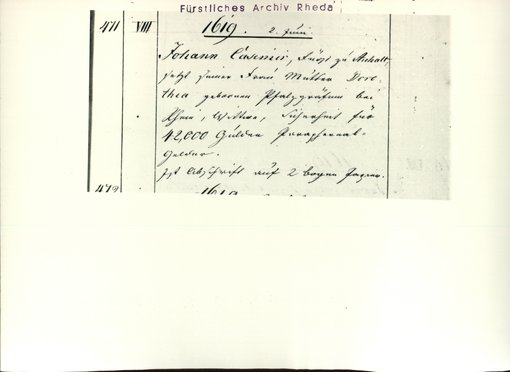 Fürstliches Archiv Rheda
471 VIII 1619. 2. Juni
Johann Casimir, Fürst zu Anhalt
setzt seiner Frau Mutter Doro-
thea geborenen Pfalzgräfinn bei
Rhein, Wittwe, Sicherheit für
42,000 Gulden Paraphernal-
Gelder.
Ist Abschrift auf 2 bogen Papier.